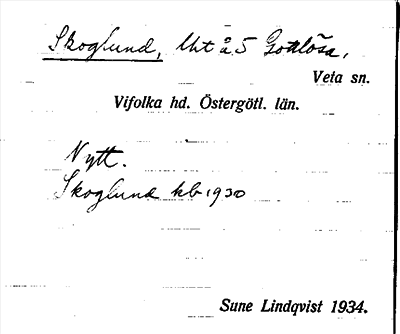 Skoglund, lht å 5 Gottlösa,
Veta sn.
Vifolka hd. Östergötl. län.
Nytt.
Skoglund kb 1930
Sune Lindqvist 1934.